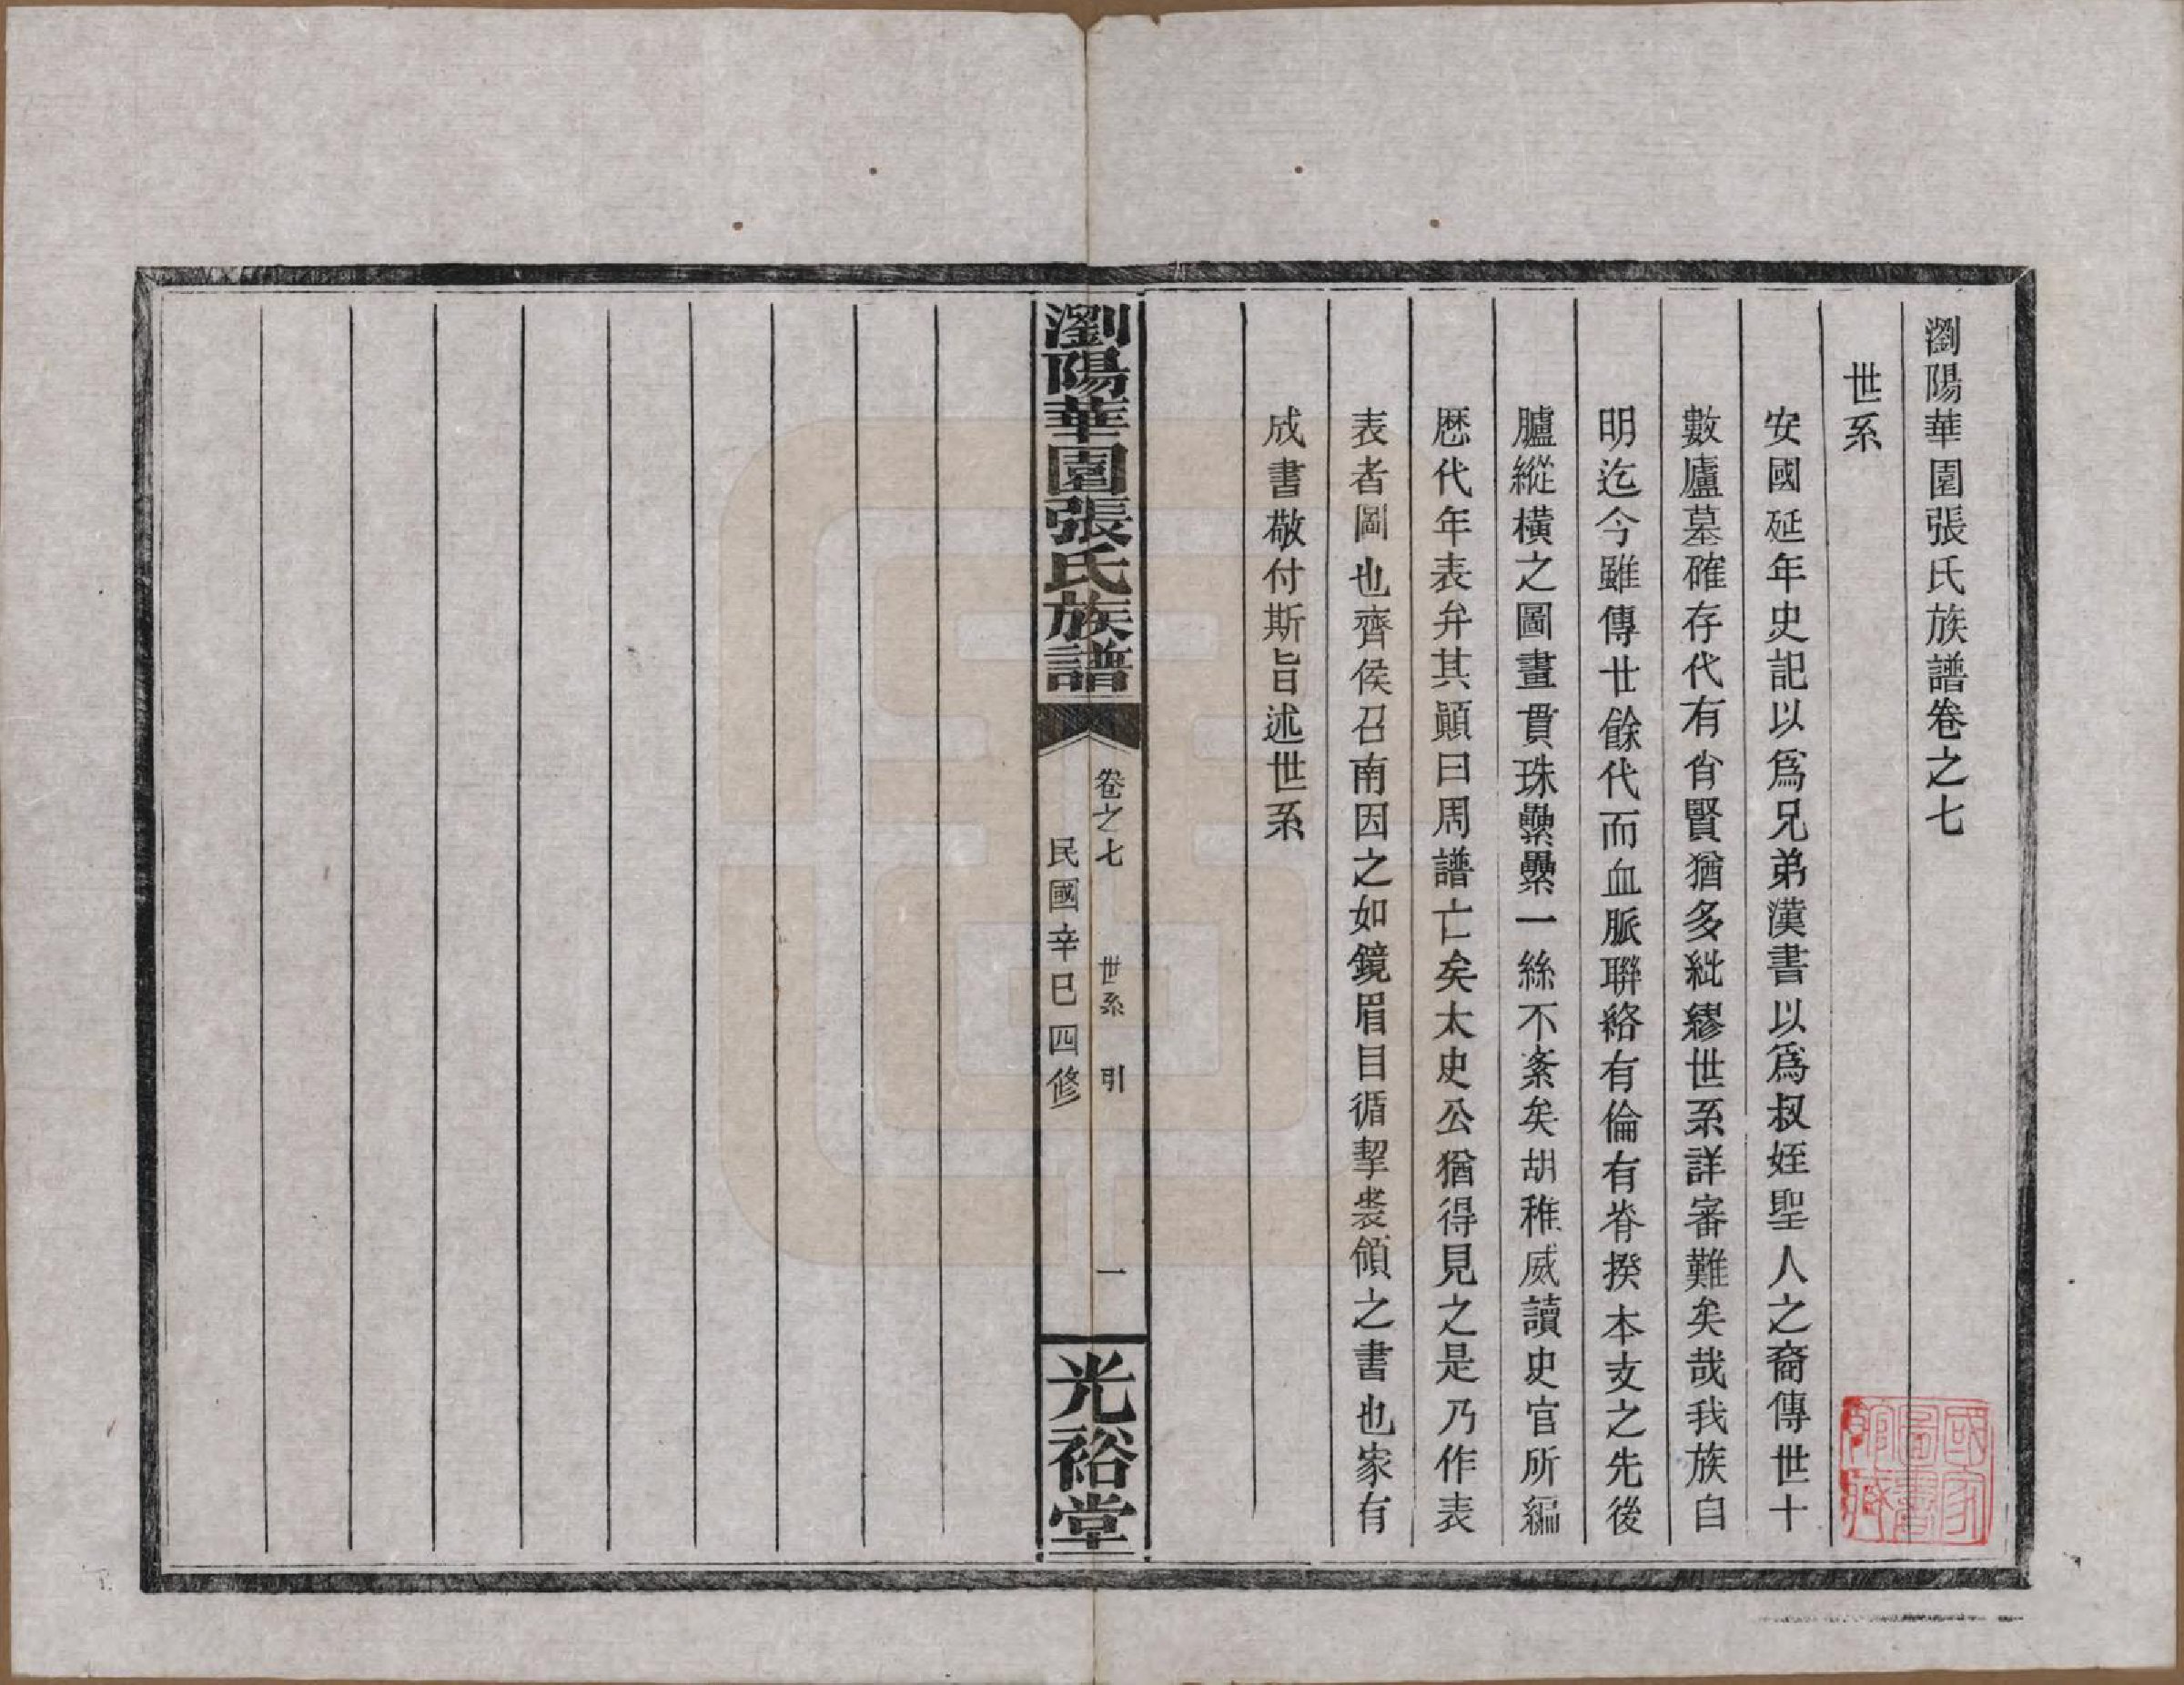 瀏陽華園張氏族譜卷之七
世系
安國延年史記以爲兄弟漢書以爲叔姪聖人之裔傳世十
數廬墓確存代有肖賢猶多紕繆世系詳審難矣哉我族自
明迄今雖傳廿餘代而血脈聯絡有倫有脊揆本支之先後
臚縱橫之圖畫貫珠纍纍一絲不紊矣胡稚威讀史官所編
歷代年表弁其顚曰周譜亡矣太史公猶得見之是乃作表
表者圖也齊侯召南因之如鏡眉目循挈裘領之書也家有
成書敬付斯旨述世系
瀏陽華園張氏族譜
卷之七 世系 引 一
民國辛巳四修
光裕堂
國家
圖書
館藏